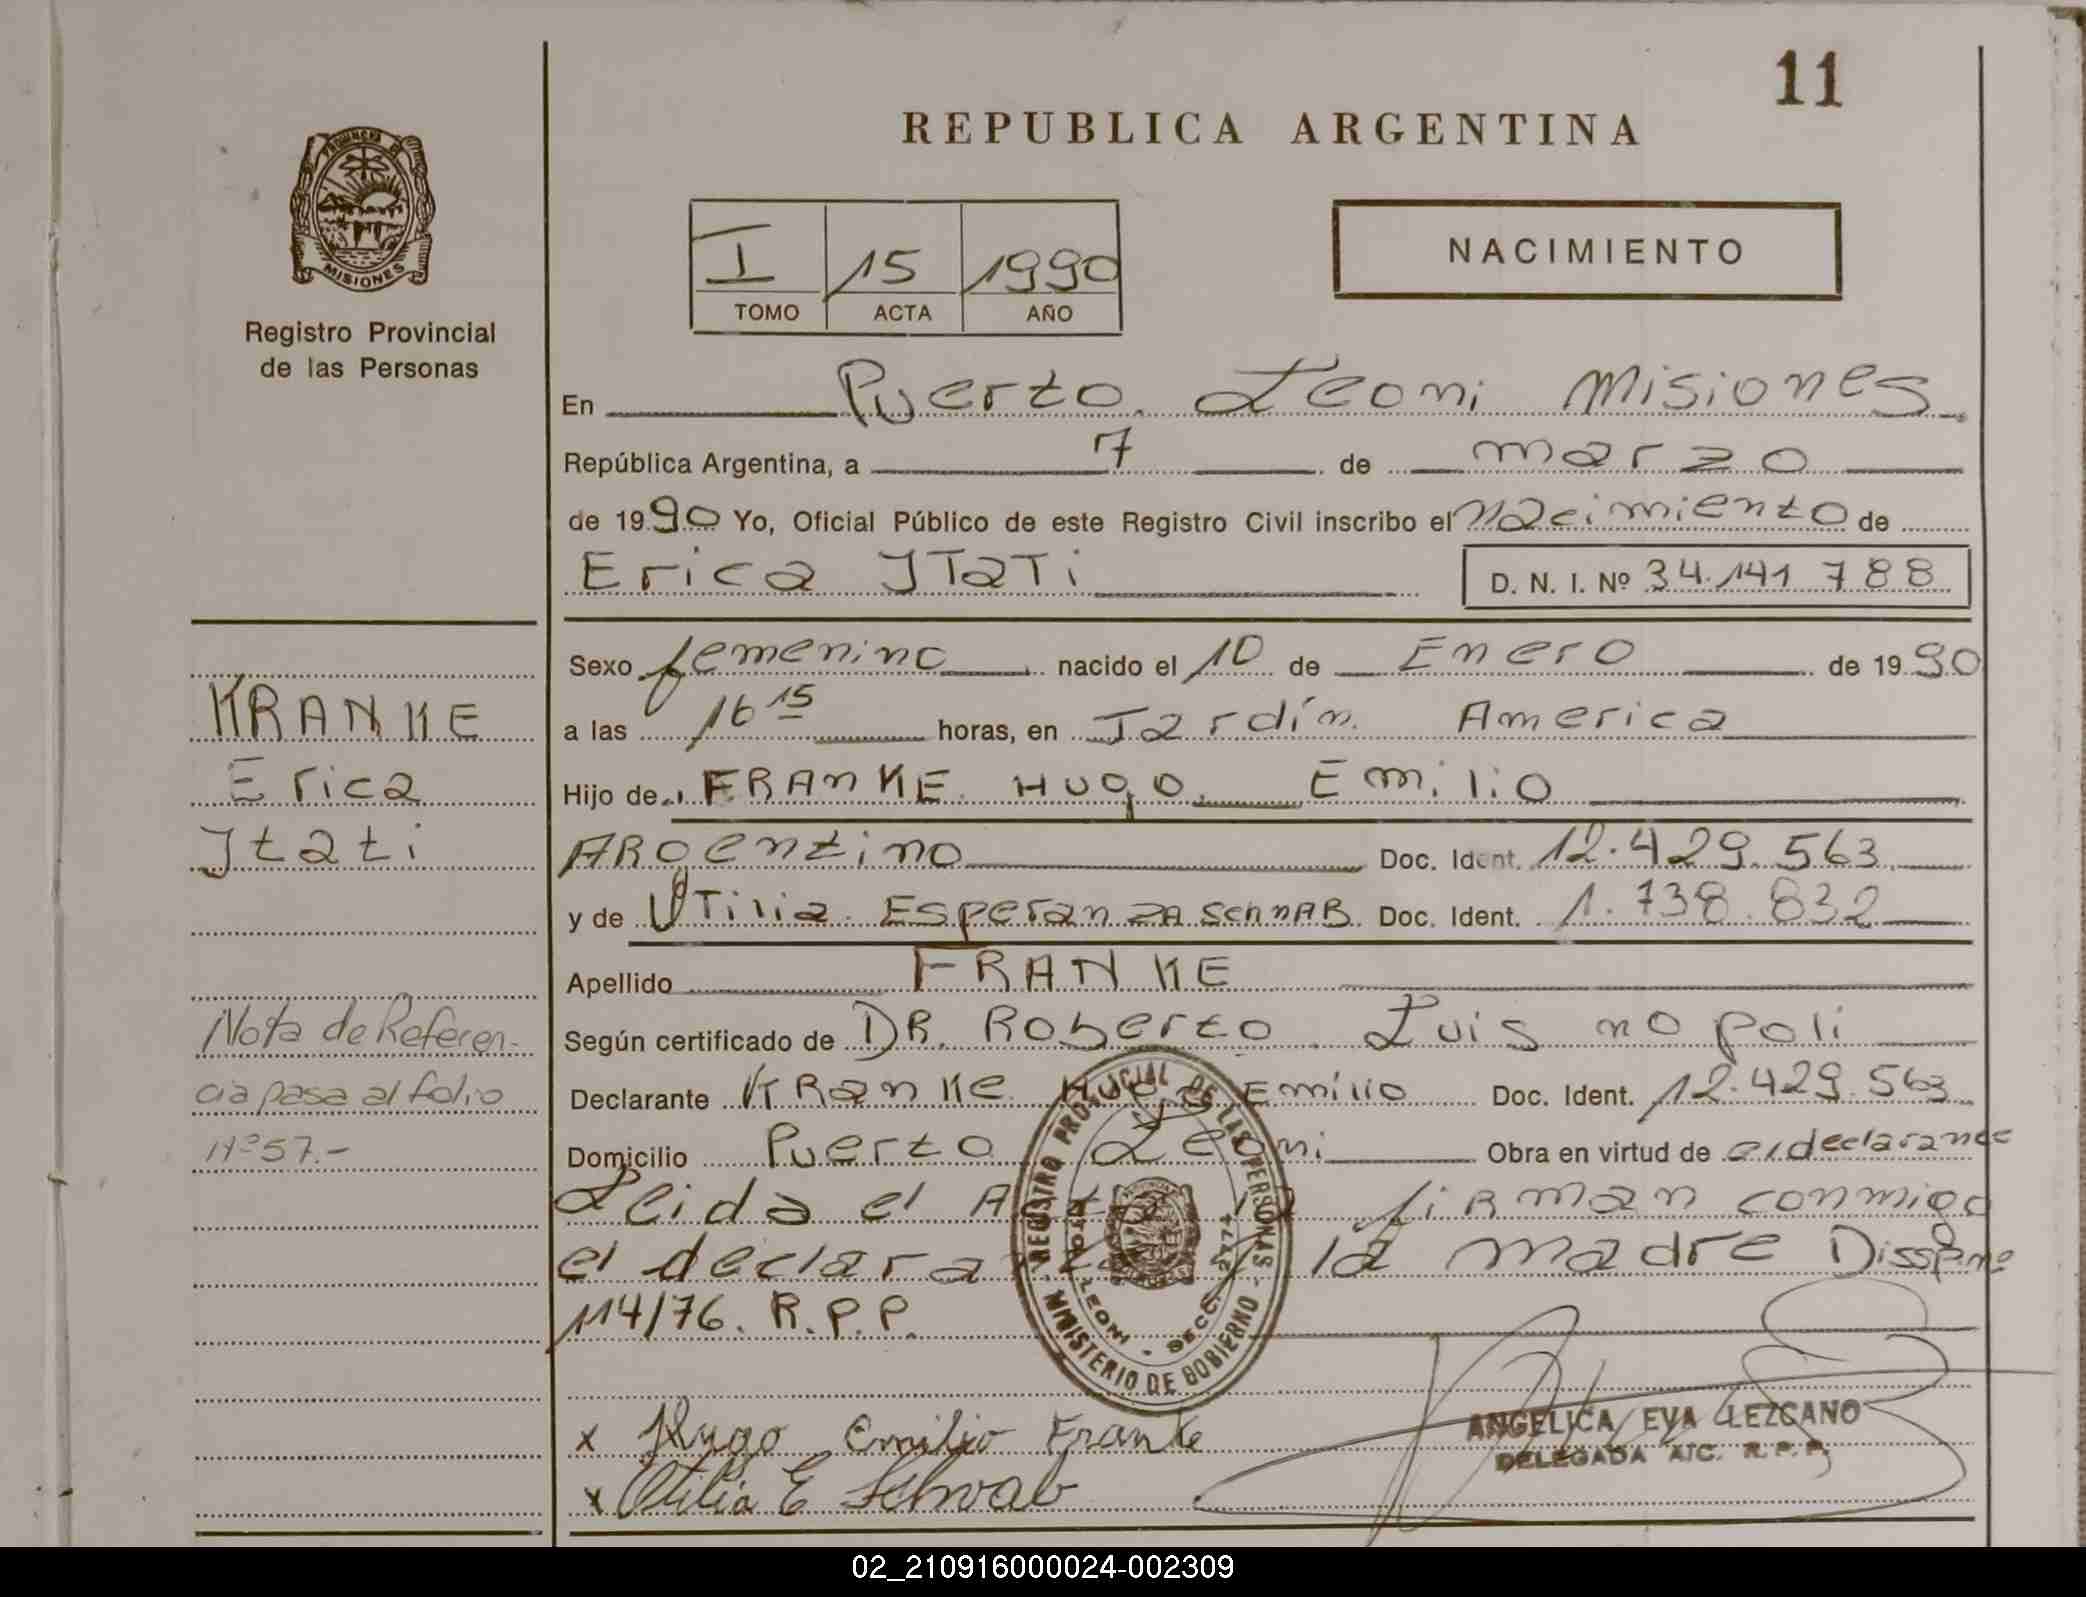 11
REPUBLICA ARGENTINA
PROVINCIA DE
MISIONES
Registro Provincial
de las Personas
I 15 1990
TOMO ACTA AÑO
NACIMIENTO
En Puerto Leoni Misiones
República Argentina, a 7 de marzo
de 1990 Yo, Oficial Público de este Registro Civil inscribo el Nacimiento de
Erica Itati D. N. I. Nº 34.141 788
Sexo femenino nacido el 10 de Enero de 1990
KRANKE
a las 16 15 horas, en Jardín America
Erica
Hijo de FRANKE Hugo Emilio
Itati
Argentino Doc. Ident. 12.429.563
y de Otilia Esperanza Schnab Doc. Ident. 1.738.832
Apellido FRANKE
Nota de Referen-
Según certificado de DR. Roberto Luis nopoli
cia pasa al folio
Declarante Kranke Hugo Emilio Doc. Ident. 12.429.563
Nº 57.-
Domicilio Puerto Leoni Obra en virtud de el declarante
Leida el Acta la firman conmigo
el declarante y la madre Dissp. nº
114/76. R.P.P.
REGISTRO PROVINCIAL DE LAS PERSONAS
MINISTERIO DE GOBIERNO
LEONI - SECC. 2774
x Hugo Emilio Franke
x Otilia E Schwab
ANGELICA EVA LEZCANO
DELEGADA A/C. R. P. P.
02_210916000024-002309